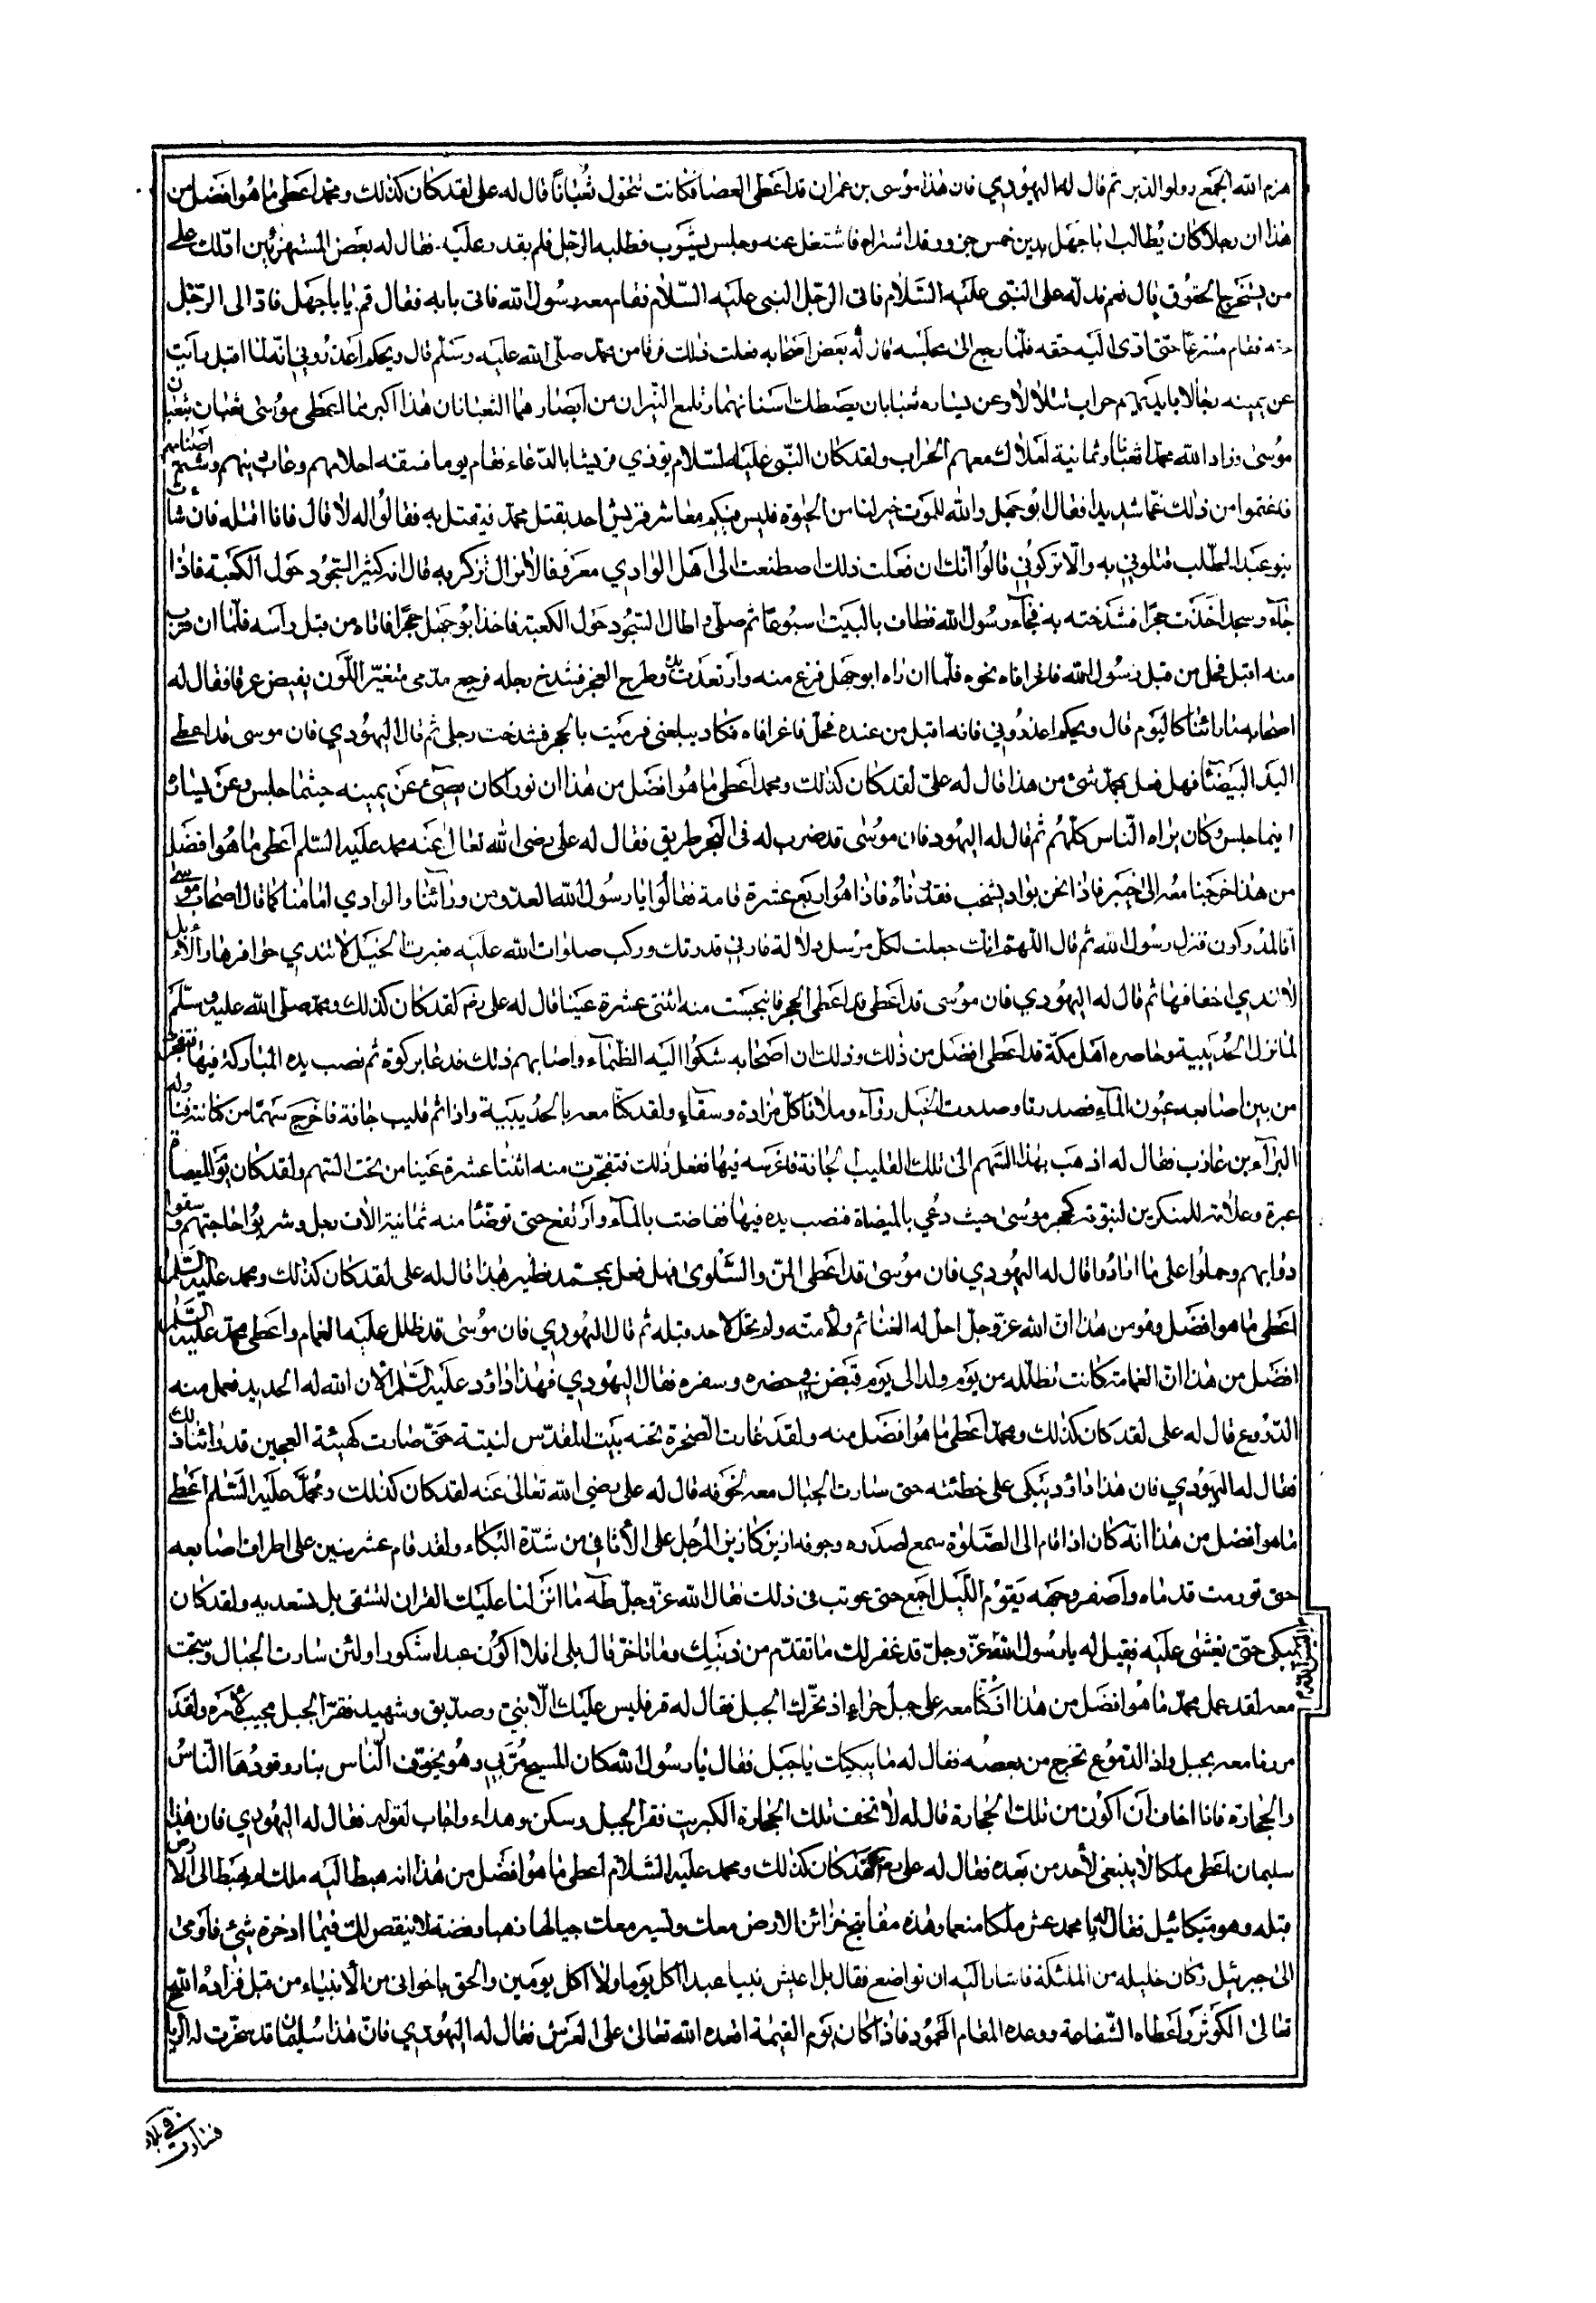 هزم الله الجمع وولوا الدبر ثم قال له اليهودي فان هذا موسى بن عمران قد اعطى العصا فكانت تتحول ثعبانا قال له على لقد كان كذلك ومحمد اعطى ما هو افضل من
هذا ان رجلا كان يطالب ابا جهل بدين خمس جزور قد اشتراه فاشتغل عنه وجلس يشرب فطلبه الرجل فلم يقدر عليه فقال له بعض المستهزئين ادلك على
من يستخرج الحقوق قال نعم فدله على النبى عليه السلام فاتى الرجل النبى عليه السلام فقام معه رسول الله فاتى بابه فقال قم يا باجهل فادّ الى الرجل
حقه فقام مسرعا حتى ادى اليه حقه فلما رجع الى مجلسه قال له بعض اصحابه فعلت ذلك فرقا من محمد صلى الله عليه وسلم قال ويحكم اعذروني انه لما اقبل رأيت
عن يمينه رجالا بايديهم حراب تتلالا وعن يساره ثعبانان يصطك اسنانهما وتلمع النيران من ابصارهما الثعبانان هذا اكبر مما اعطى موسى ثعبان بثعبان
موسى وزاد الله محمدا ثعبانا وثمانية املاك معهم الحراب ولقد كان النبى عليه السلام يوذي قريشا بالدعاء فقام يوما فسفه احلامهم وعاب دينهم وشتم اصنامهم
فاغتموا من ذلك غما شديدا فقال ابو جهل والله للموت خير لنا من الحيوة فليس منكم معاشر قريش احد يقتل محمدا فيقتل به فقالوا له لا قال فانا اقتله فان شأت
بنو عبد المطلب قتلوني به والا تركوني قالوا انك ان فعلت ذلك اصطنعت الى اهل الوادي معروفا لا نزال تذكر به قال انه كثير السجود حول الكعبة فاذا
جاء وسجد اخذت حجرا فشدخته به فجاء رسول الله فطاف بالبيت اسبوعا ثم صلى واطال السجود حول الكعبة فاخذ ابو جهل حجرا فاتاه من قبل رأسه فلما ان قرب
منه اقبل فحل من قبل رسول الله فاغرا فاه نحوه فلما ان راه ابو جهل فزع منه وارتعدت يده وطرح الحجر فشدخ رجله فرجع مدمى متغير اللون يفيض عرقا فقال له
اصحابه ما رائناك كاليوم قال ويحكم اعذروني فانه اقبل من عنده فحل فاغرا فاه فكاد يبلعنى فرميت بالحجر فشدخت رجلى ثم قال اليهودي فان موسى قد اعطى
اليد البيضاء فهل فعل بمحمد شئ من هذا قال له على لقد كان كذلك ومحمد اعطى ما هو افضل من هذا ان نورا كان يضئ عن يمينه حيثما جلس وعن يساره
اينما جلس وكان يراه الناس كلهم ثم قال له اليهود فان موسى قد ضرب له فى البحر طريق فقال له على رضى الله تعالى عنه محمد عليه السلم اعطى ما هو افضل
من هذا خرجنا معه الى خيبر فاذا نحن بواد يشخب فقدرناه فاذا هو اربع عشرة قامة فقالوا يا رسول الله العدو من ورائنا والوادي امامنا كما قال اصحاب موسى
انا لمدركون فنزل رسول الله ثم قال اللهم انك جعلت لكل مرسل دلالة فارني قدرتك وركب صلوات الله عليه فعبرت الخيل لا تندي حوافرها والابل
لا تندي اخفافها ثم قال له اليهودي فان موسى قد اعطى قد اعطى الحجر فانبجست منه اثنتى عشرة عينا قال له على رضه لقد كان كذلك ومحمد صلى الله عليه وسلم
لما نزل الحديبية وحاصره اهل مكة قد اعطى افضل من ذلك وذلك ان اصحابه شكوا اليه الظماء واصابهم ذلك فدعا بركوة ثم نصب يده المباركة فيها فتفجرت
من بين اصابعه عيون الماء فصدرنا وصدرت الخيل رواء وملانا كل مزادة وسقاء ولقد كنا معه بالحديبية واذا ثم قليب جافة فاخرج سهما من كنانته فناوله
البرآء بن عازب فقال له اذهب بهذا السهم الى تلك القليب الجافة فاغرسه فيها ففعل ذلك فتفجرت منه اثنتا عشرة عينا من تحت السهم ولقد كان يوم الميضاة
عبرة وعلامة للمنكرين لنبوته كحجر موسى حيث دعي بالميضاة فنصب يده فيها ففاضت بالماء وارتفع حتى توضأ منه ثمانية الاف رجل وشربوا حاجتهم وسقوا
دوابهم وحملوا على ما ارادوا قال له اليهودي فان موسى قد اعطى المن والسلوى فهل فعل بمحمد نظير هذا قال له على لقد كان كذلك ومحمد عليه السلم
اعطى ما هو افضل وهو من هذا ان الله عز وجل احل له الغنائم ولأمته ولم تحل لاحد قبله ثم قال اليهودي فان موسى قد ظلل عليه الغمام واعطى محمد عليه السلم
افضل من هذا ان الغمامة كانت تظلله من يوم ولد الى يوم قبض في حضره وسفره فقال اليهودي فهذا داؤد عليه السلم الان الله له الحديد فعمل منه
الدروع قال له على لقد كان كذلك ومحمد اعطى ما هو افضل منه ولقد غارت الصخرة تحته بيت المقدس لنيته حتى صارت كهيئة العجين قد رائنا ذلك
فقال له اليهودي فان هذا داؤد بكى على خطئته حتى سارت الجبال معه لخوفه قال له على رضى الله تعالى عنه لقد كان كذلك ومحمد عليه السلم اعطى
ما هو افضل من هذا انه كان اذا قام الى الصلوة سمع لصدره وجوفه ازيز كازيز المرجل على الأثافى من شدة البكاء ولقد قام عشر سنين على اطراف اصابعه
حتى تورمت قدماه واصفر وجهه يقوم الليل اجمع حتى عوتب فى ذلك فقال الله عز وجل طه ما انزلنا عليك القران لتشقى بل لتسعد به ولقد كان
يبكى حتى يغشى عليه فقيل له يا رسول الله الله عز وجل قد غفر لك ما تقدم من ذنبك وما تاخر قال بلى افلا اكون عبدا شكورا ولئن سارت الجبال وسبحت
معه لقد عمل محمد ما هو افضل من هذا اذ كنا معه على جبل حراء اذ تحرك الجبل فقال له قر فليس عليك الا نبي وصديق وشهيد فقر الجبل مجيبا لأمره ولقد
مررنا معه بجبل واذا الدموع تخرج من بعضه فقال له ما يبكيك يا جبل فقال يا رسول الله كان المسيح مر بي وهو يخوف الناس بنار وقودها الناس
والحجارة فانا اخاف ان اكون من تلك الحجارة قال له لا تخف تلك الحجارة الكبريت فقر الجبل وسكن وهداء واجاب لقوله فقال له اليهودي فان هذا
سليمان اعطى ملكا لا ينبغى لأحد من بعده فقال له على رضه لقد كان كذلك ومحمد عليه السلام اعطى ما هو افضل من هذا انه هبط اليه ملك لم يهبط الى الارض
قبله وهو ميكائيل فقال له يا محمد عش ملكا منعما وهذه مفاتيح خزائن الارض معك وتسير معك جبالها ذهبا وفضة لا ينقص لك فيما ادخرة شئ فاومى
الى جبرئيل وكان خليله من الملئكة فاشار اليه ان تواضع فقال بل اعيش نبيا عبدا اكل يوما ولا اكل يومين والحق باخوانى من الأنبياء من قبل فزاده الله
تعالى الكوثر واعطاه الشفاعة ووعده المقام المحمود فاذا كان يوم القيمة اقعده الله تعالى على العرش فقال له اليهودي فان هذا سليمان قد سخرت له الرياح
فسارت به فى بلاد